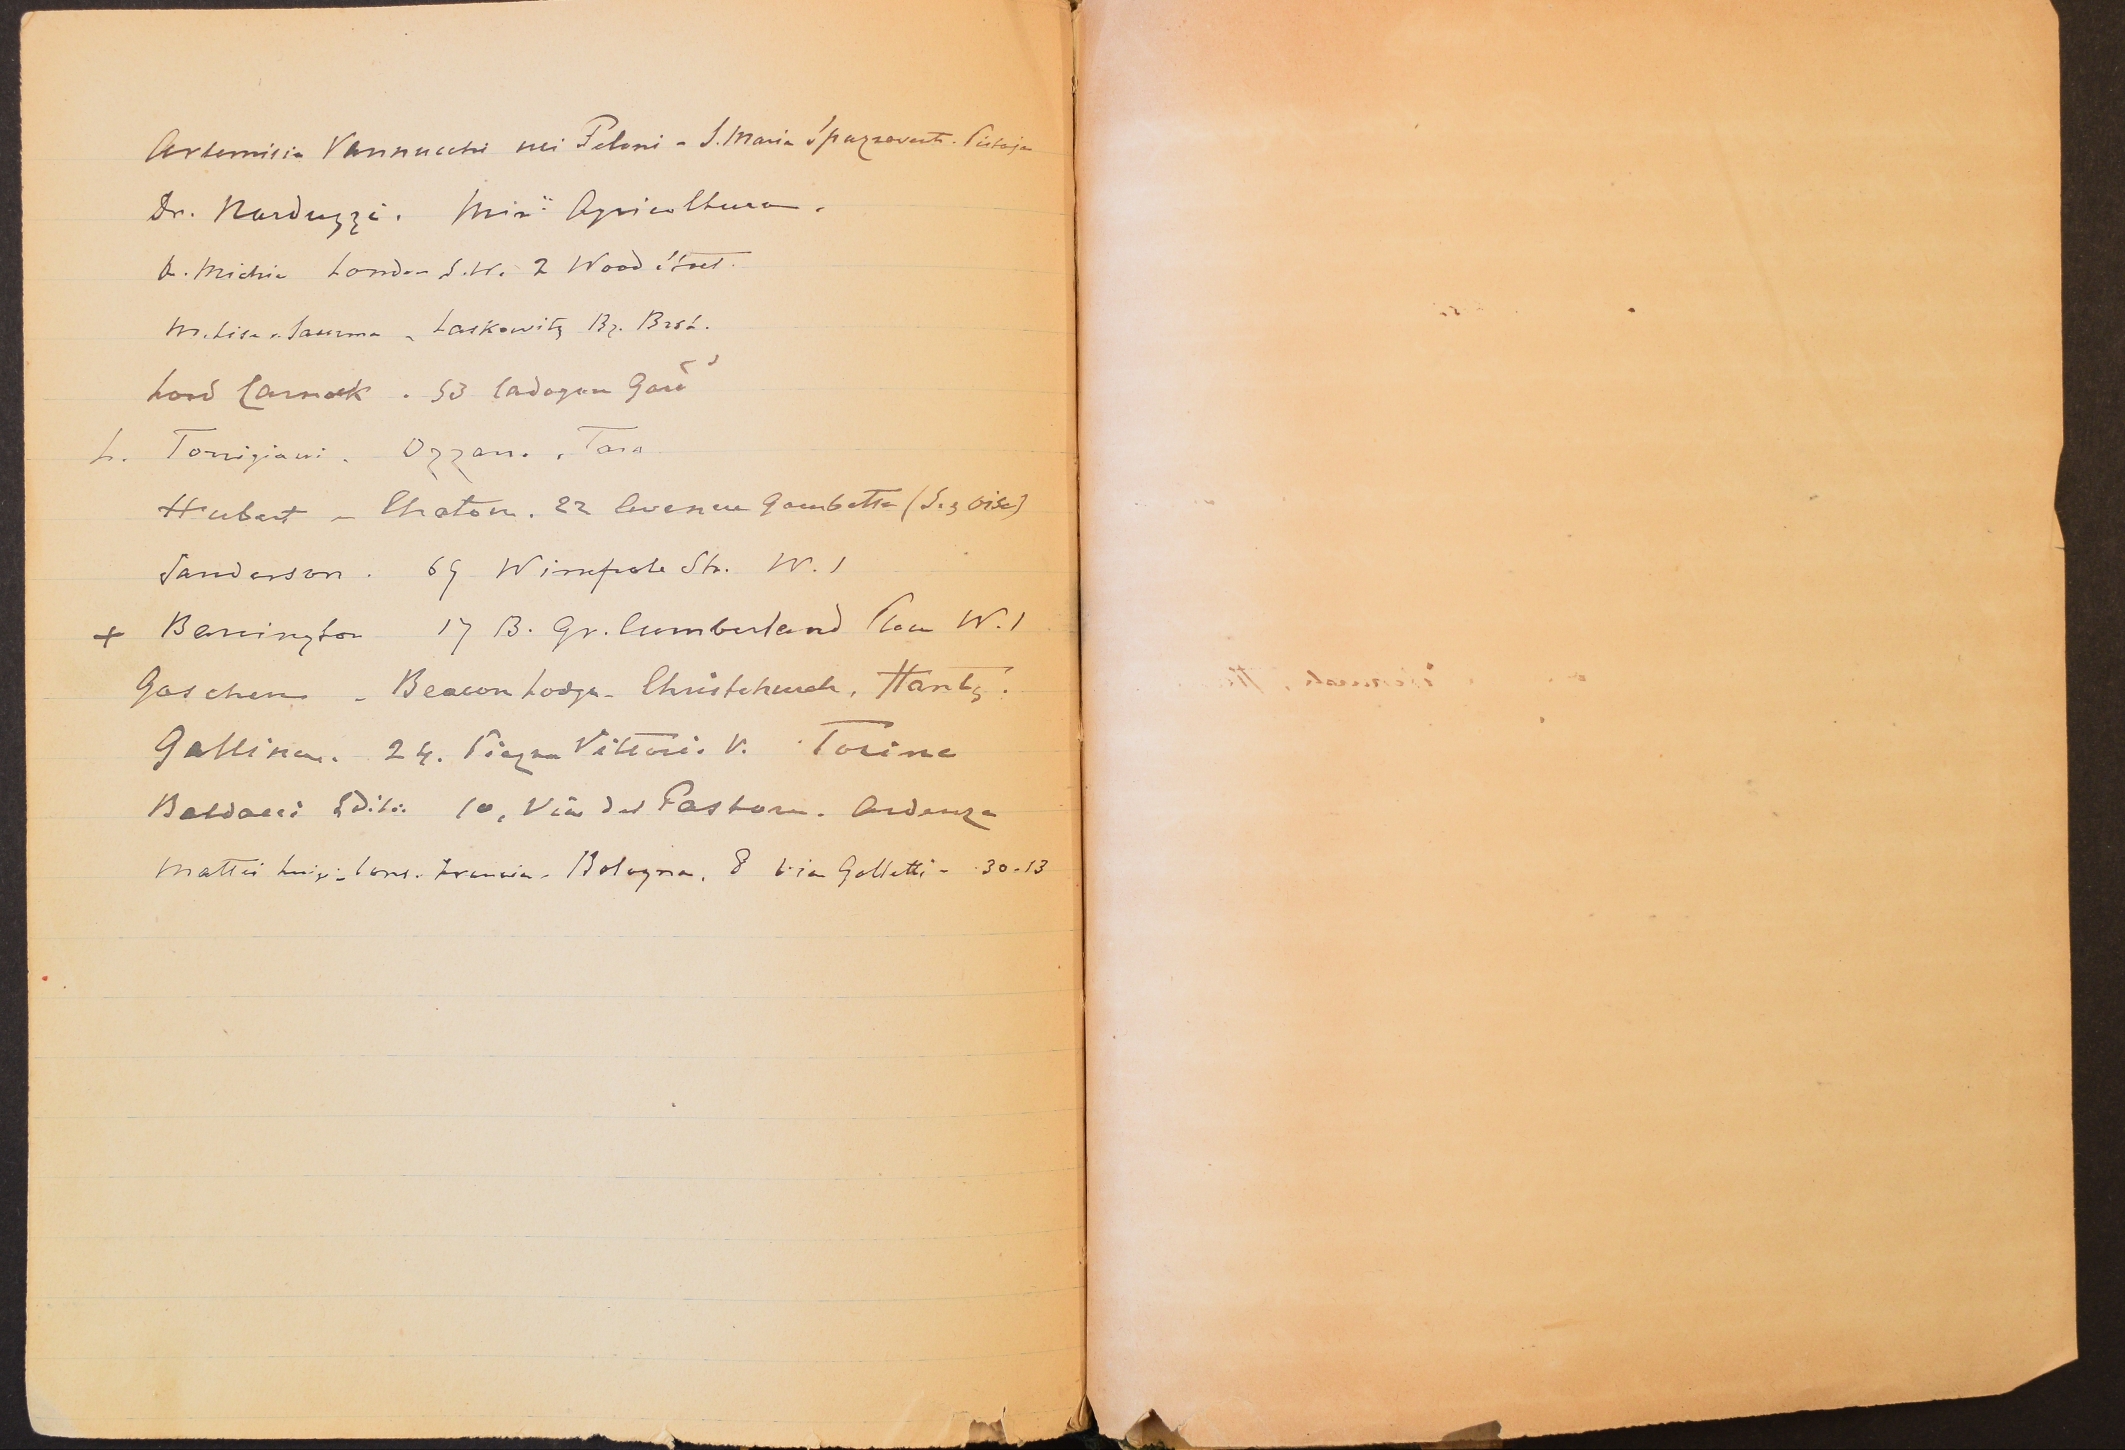 Artemisia Vannucchi nei Feloni - S. Maria Spazzavento. Pistoja
Dr. Narduzzi. Min: Agricoltura.
A. Michie London S.W. 2 Wood Street.
M. Lisa v. Saurma - Laskowitz Bz. Bresl.
Lord Carnock. 53 Cadogan Gard
L. Torrigiani. Ozzano. Taro
Hubert - Chatou. 22 Avenue Gambetta (S. & Oise)
Sanderson. 69 Wimpole Str. W.1
+ Barrington 17 B. Gr. Cumberland Place W.1
Goschen - Beacon Lodge - Christchurch, Hants.
Gallina. 24. Piazza Vittorio V. Torino
Baldacci 10, Via del Pastore. Ardenza
Mattei Luigi - Cons. Francia - Bologna, 8 via Galletti - 30-13